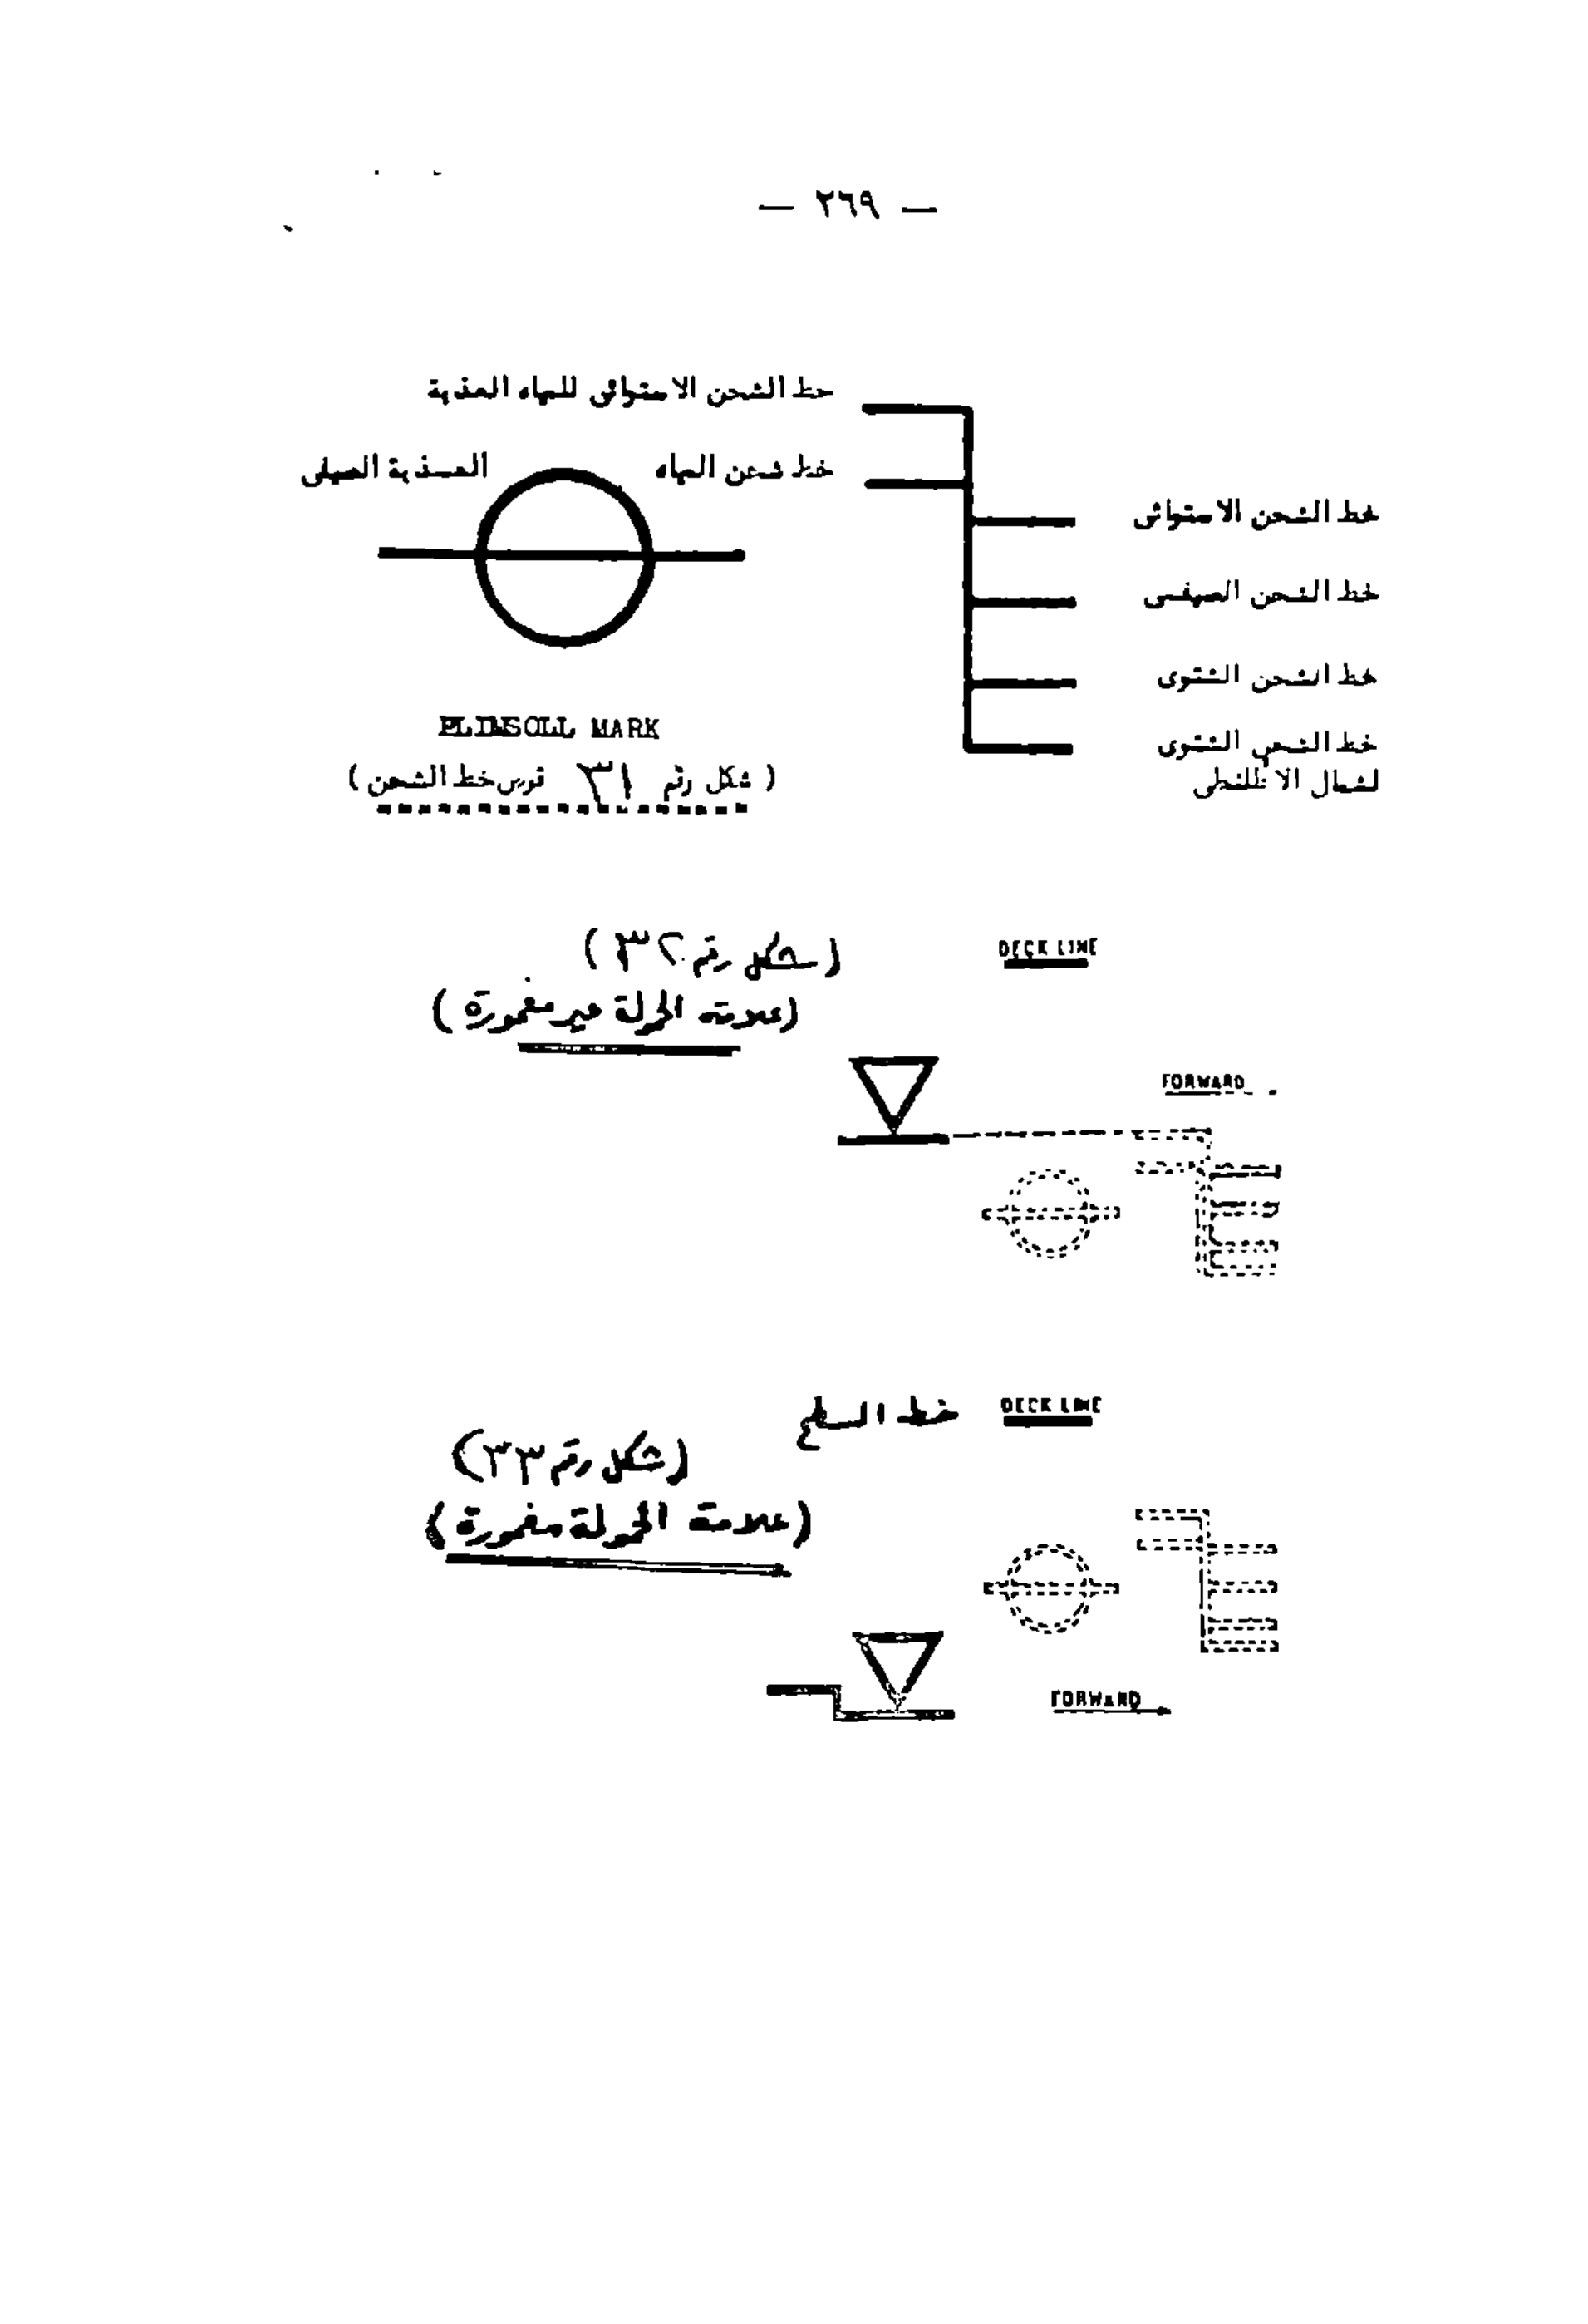 — ٢٦٩ —
خط الشحن الاستوائى للمياه العذبة
خط شحن المياه العسذبة الصيفى
خط الشحن الاستوائى
خط الشحن الصيفسى
خط الشحن الشتوى
خط الشحن الشتوى
لشمال الاطلنطى
PLIMSOLL MARK
( شكل رقم ٣١ قرص خط الشحن )
(شكل رقم ٣٢)
DECK LINE
(علامة الحولة غير مغمورة)
FORWARD
خط السطح
DECK LINE
(شكل رقم ٣٣)
(علامة الحولة مغمورة)
FORWARD